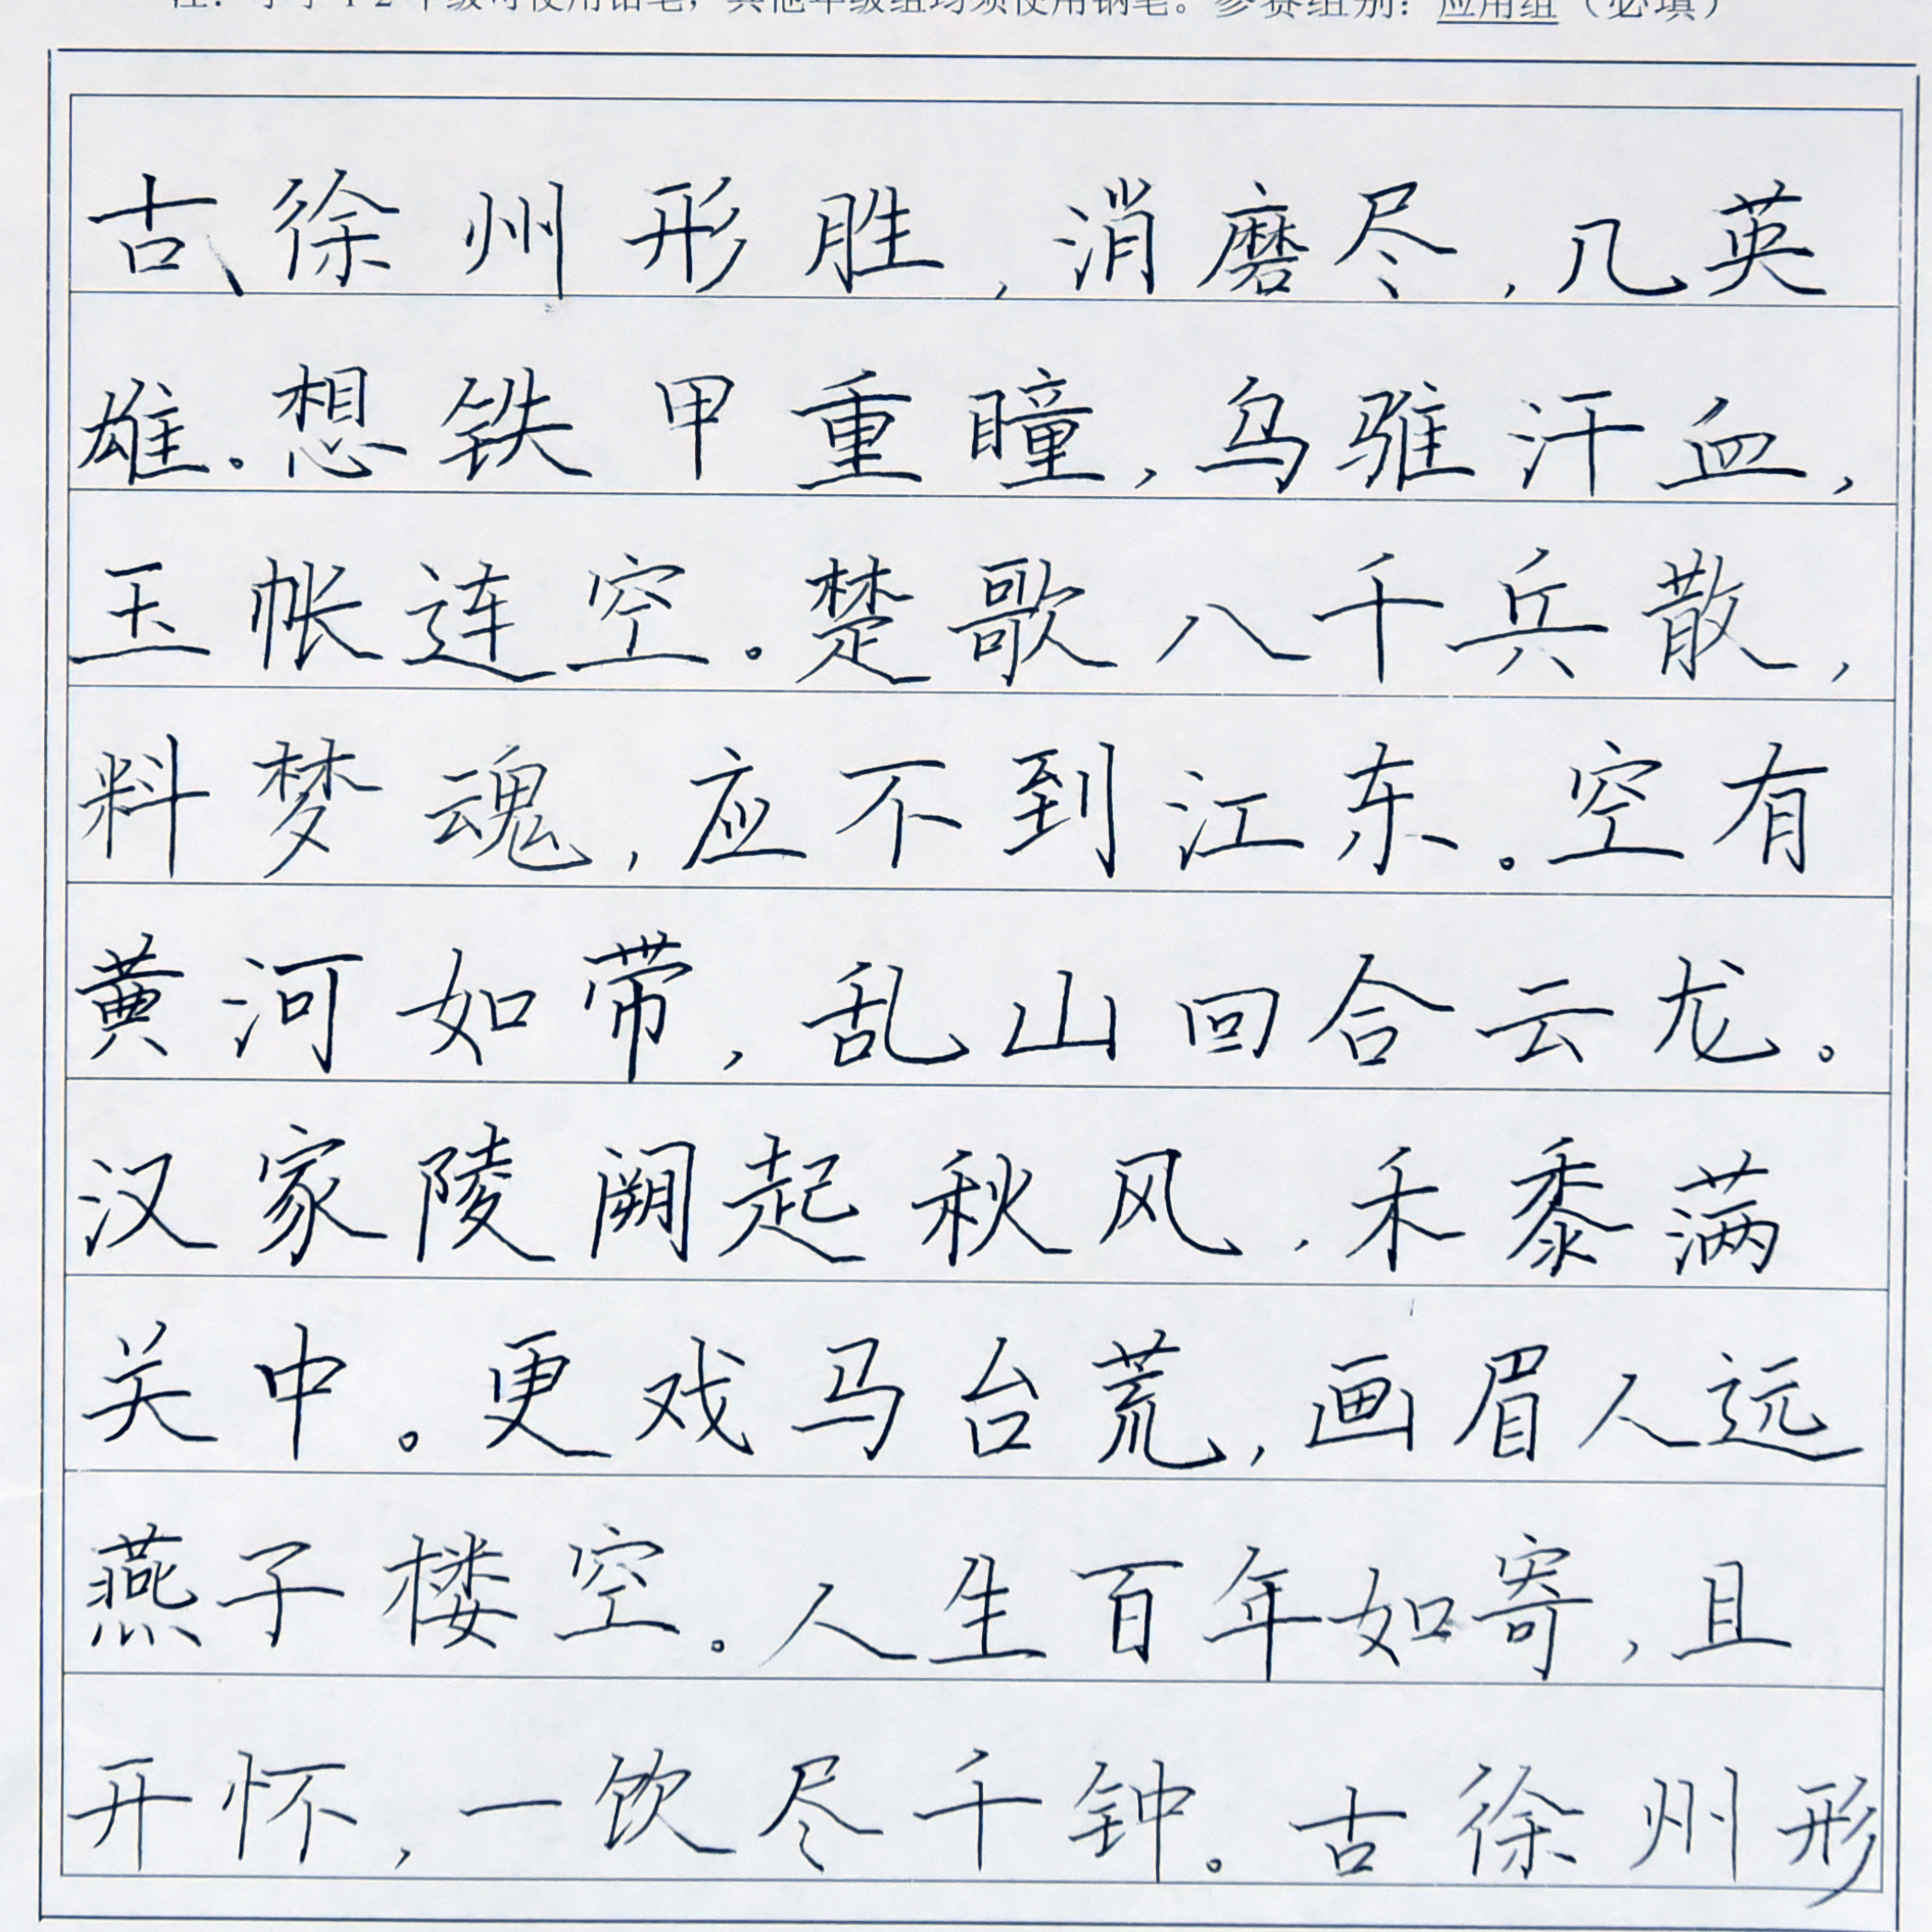 注：小学1-2年级可使用铅笔，其他年级组均须使用钢笔。参赛组别：应用组（必填）
古、徐州形胜，消磨尽，几英
雄。想铁甲重瞳，乌骓汗血，
玉帐连空。楚歌八千兵散，
料梦魂，应不到江东。空有
黄河如带，乱山回合云龙。
汉家陵阙起秋风，禾黍满
关中。更戏马台荒，画眉人远
燕子楼空。人生百年如寄，且
开怀，一饮尽千钟。古徐州形